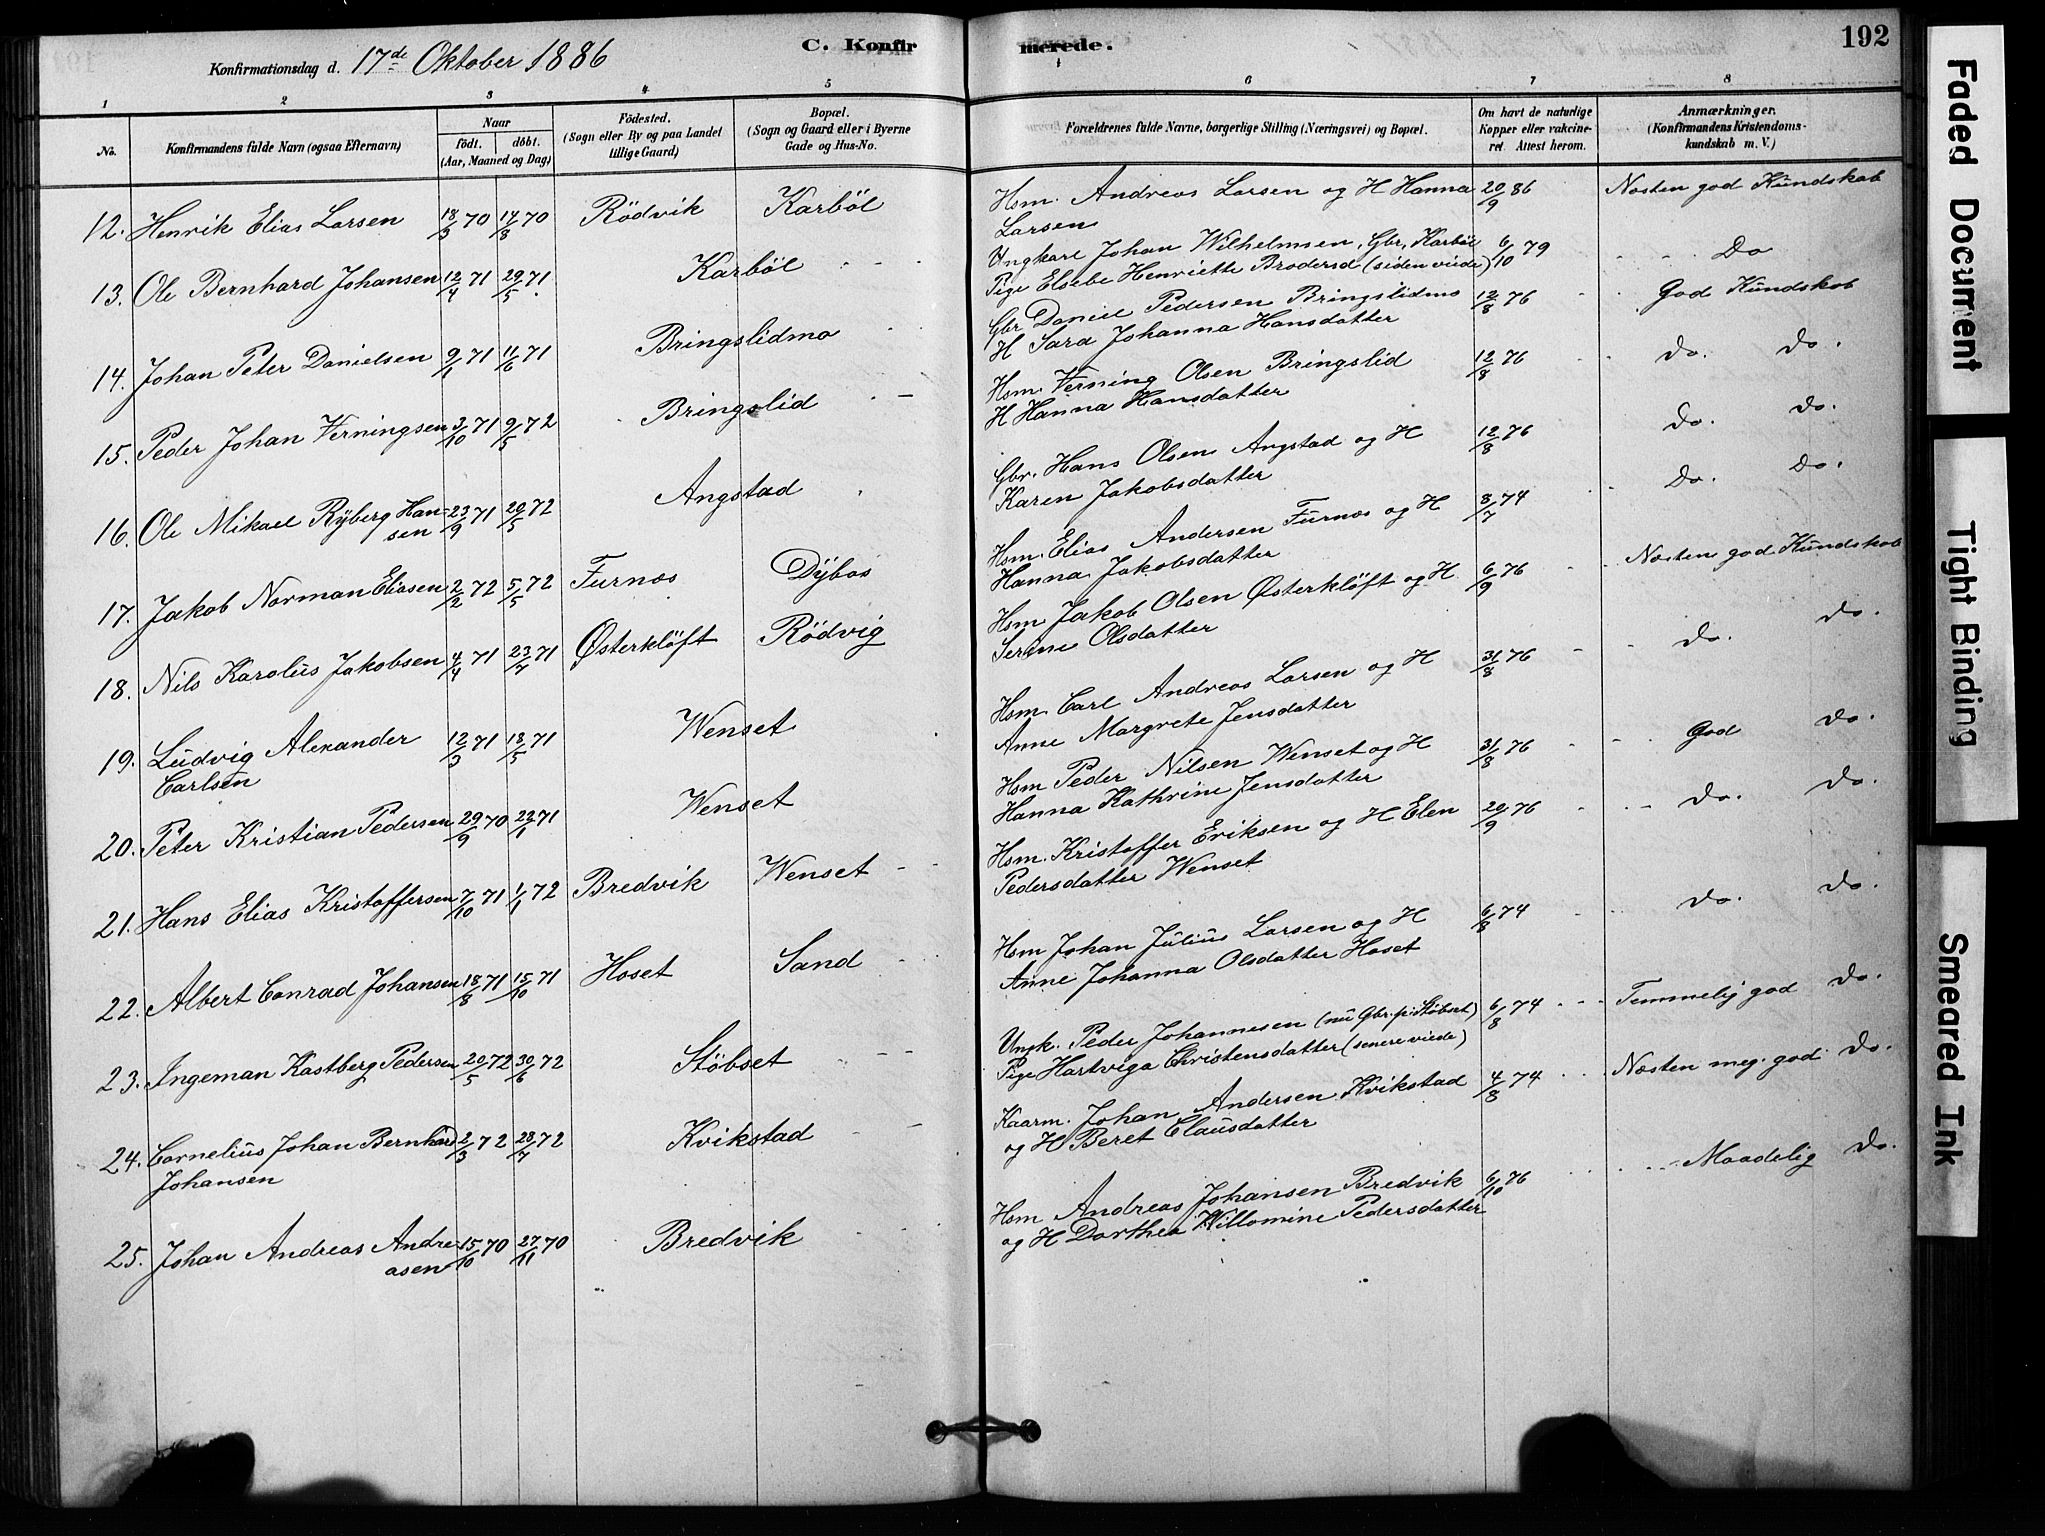 Konfirmationsdag d. 17de Oktober 1886
C. Konfirmerede.
192
1 2 3 4 5 6 7 8
No.
Konfirmandens fulde Navn (ogsaa Efternavn)
Naar
födt. döbt.
(Aar, Maaned og Dag)
Födested.
(Sogn eller By og paa Landet
tillige Gaard)
Bopæl.
(Sogn og Gaard eller i Byerne
Gade og Hus-No.
Forældrenes fulde Navne, borgerlige Stilling (Næringsvei) og Bopæl.
Om havt de naturlige
Kopper eller vakcine-
ret. Attest herom.
Anmærkninger.
(Konfirmandens Kristendoms-
kundskab m. V.)
12. Henrik Elias Larsen 18/3 70 14/8 70 Rödvik Karböl Hsm. Andreas Larsen og H Hanna 20/9 86 Næsten god Kundskab
Larsen
13. Ole Bernhard Johansen 12/4 71 29/5 71 Karböl Ungkarl Johan Wilhelmsen, Gbr, Karböl 6/10 79 Do
Pige Elsebe Henriette Brodersd (siden viede)
14. Johan Peter Danielsen 9/1 71 11/6 71 Bringslidmo Gbr Daniel Pedersen Bringslidmo 12/8 76 God Kundskab
H Sara Johanna Hansdatter
15. Peder Johan Verningsen 3/10 71 9/5 72 Bringslid Hsm. Verning Olsen Bringslid 12/8 76 do. do.
H Hanna Hansdatter
16. Ole Mikael Ryberg Han- 23/9 71 20/5 72 Angstad Gbr. Hans Olsen Angstad og H 12/8 76 do. do.
sen Karen Jakobsdatter
17. Jakob Norman Eliasen 2/2 72 5/5 72 Furnæs Dybos Hsm. Elias Andersen Furnæs og H 8/7 74 do. do.
Hanna Jakobsdatter
18. Nils Karolus Jakobsen 4/4 71 23/7 71 Østerklöft Rödvig Hsm Jakob Olsen Østerklöft og H 6/9 76 Næsten god Kundskab
Serine Olsdatter
19. Ludvig Alexander 12/3 71 18/5 71 Wenset Hsm. Carl Andreas Larsen og H 31/8 76 do. do.
Carlsen Anne Margrete Jensdatter
20. Peter Kristian Pedersen 29/9 70 22/1 71 Wenset Hsm Peder Nilsen Wenset og H 31/8 76 God do.
Hanna Kathrine Jensdatter
21. Hans Elias Kristoffersen 7/10 71 1/1 72 Bredvik Wenset Hsm. Kristoffer Eriksen og H Elen 20/9 76 do. do.
Pedersdatter Wenset
22. Albert Conrad Johansen 18/8 71 15/10 71 Hoset Sand Hsm Johan Julius Larsen og H 6/8 74 do. do.
Anne Johanna Olsdatter Hoset
23. Ingeman Kastberg Pedersen 20/5 72 30/6 72 Stöbset Ungk. Peder Johannesen (nu Gbr. p. Stöbset) 6/8 74 Temmelig god do.
Pige Hartviga Christensdatter (senere viede)
24. Cornelius Johan Bernhard 2/3 72 28/7 72 Kvikstad Kaarm. Johan Andersen Kvikstad 4/8 74 Næsten meg. god do.
Johansen og H Beret Clausdatter
25. Johan Andreas Andre- 15/10 70 27/11 70 Bredvik Hsm Andreas Johansen Bredvik 6/10 76 Maadelig do.
asen og H Dorthea Willomine Pedersdatter
Faded Document
Tight Binding
Smeared Ink